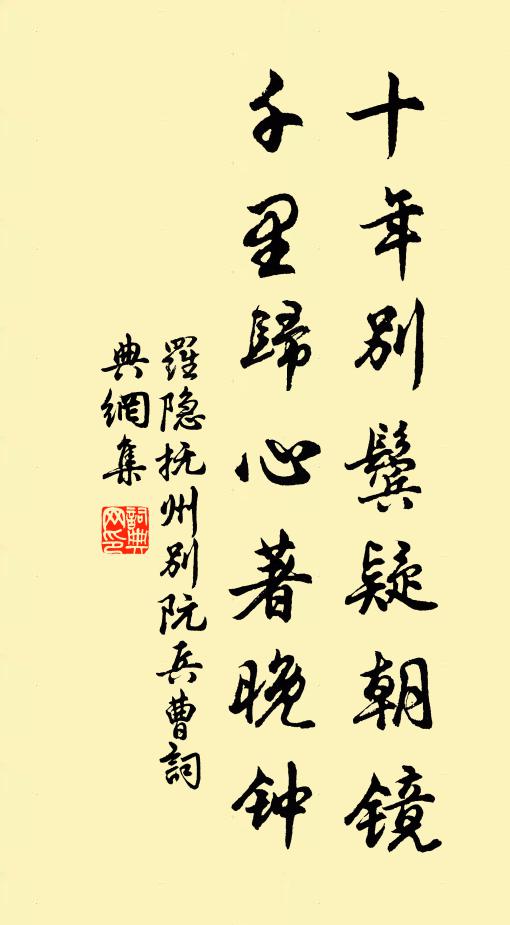 十年别鬓疑朝镜
千里歸心著晚钟
羅隐抚州别阮兵曹詞
典網集
詞典网印